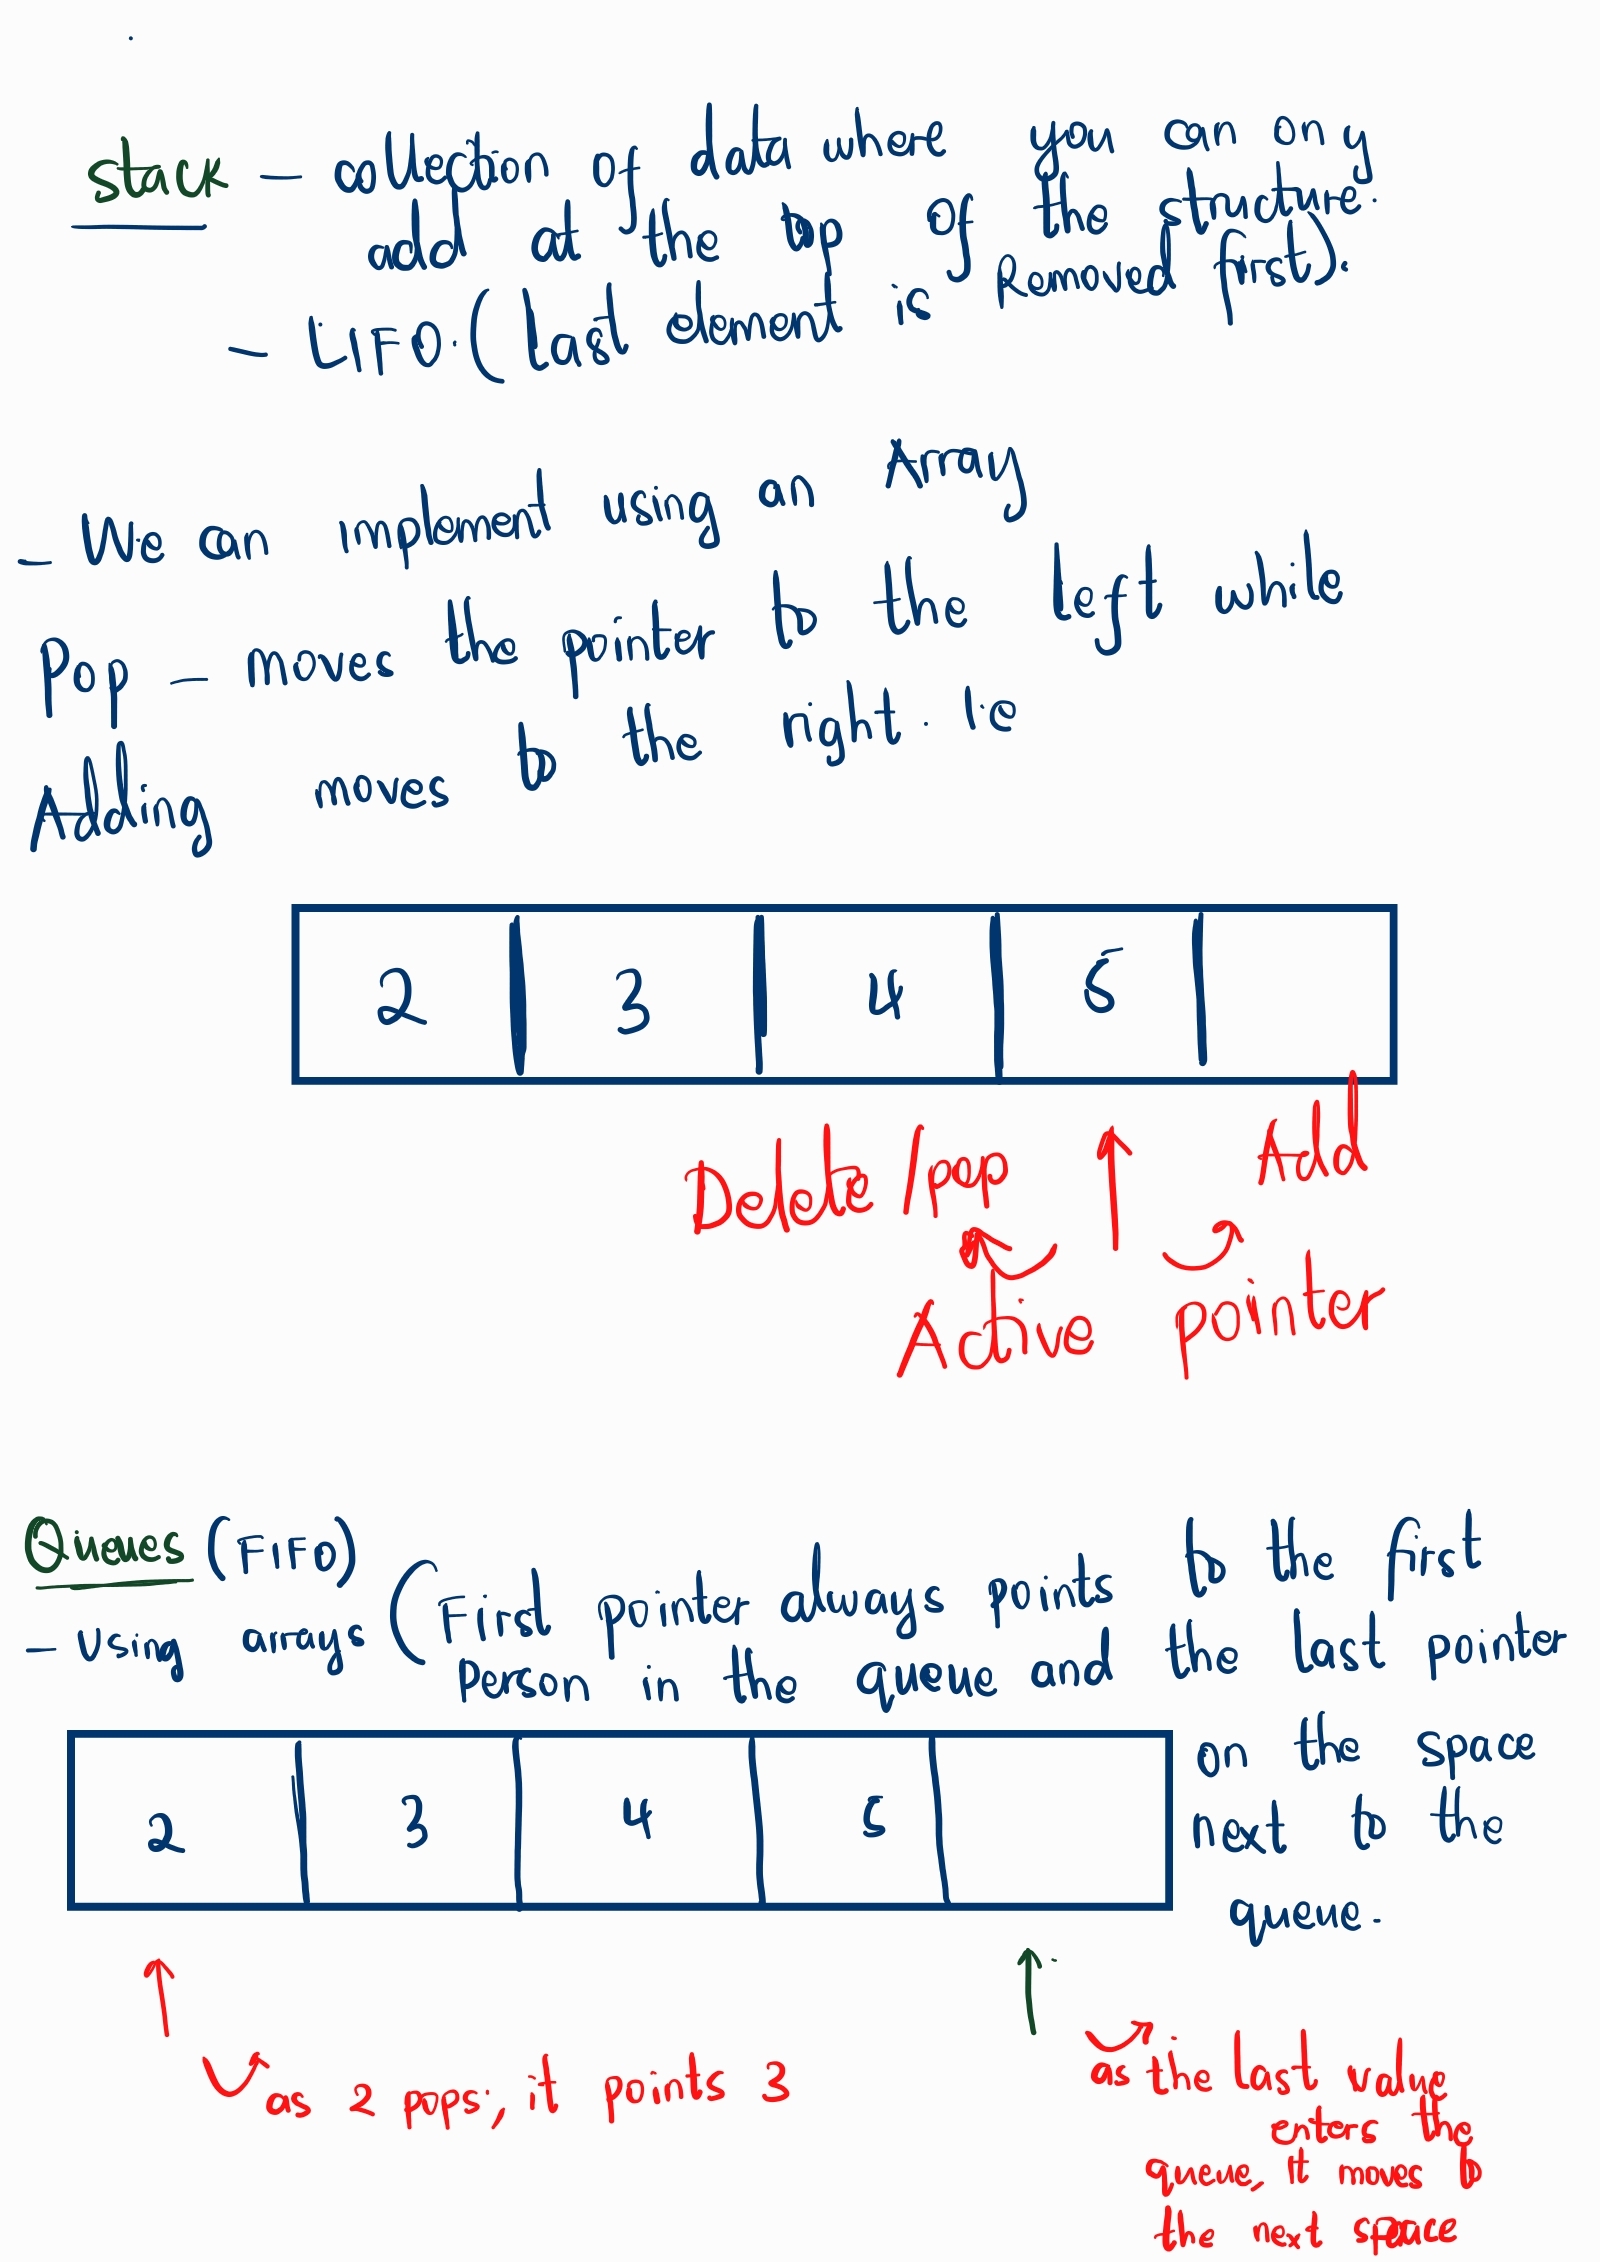 stack – collection of data where you can ony
add at the top of the structure.
– LIFO. (last element is Removed first).
– We can implement using an Array
Pop – moves the pointer to the left while
Adding moves to the right. Ie
2 3 4 5
Delete/pop Add
Active pointer
Queues (FIFO)
– Using arrays (First pointer always points to the first
person in the queue and the last pointer
on the space
next to the
queue.
2 3 4 5
as 2 pops; it points 3
as the last value
enters the
queue, it moves to
the next space